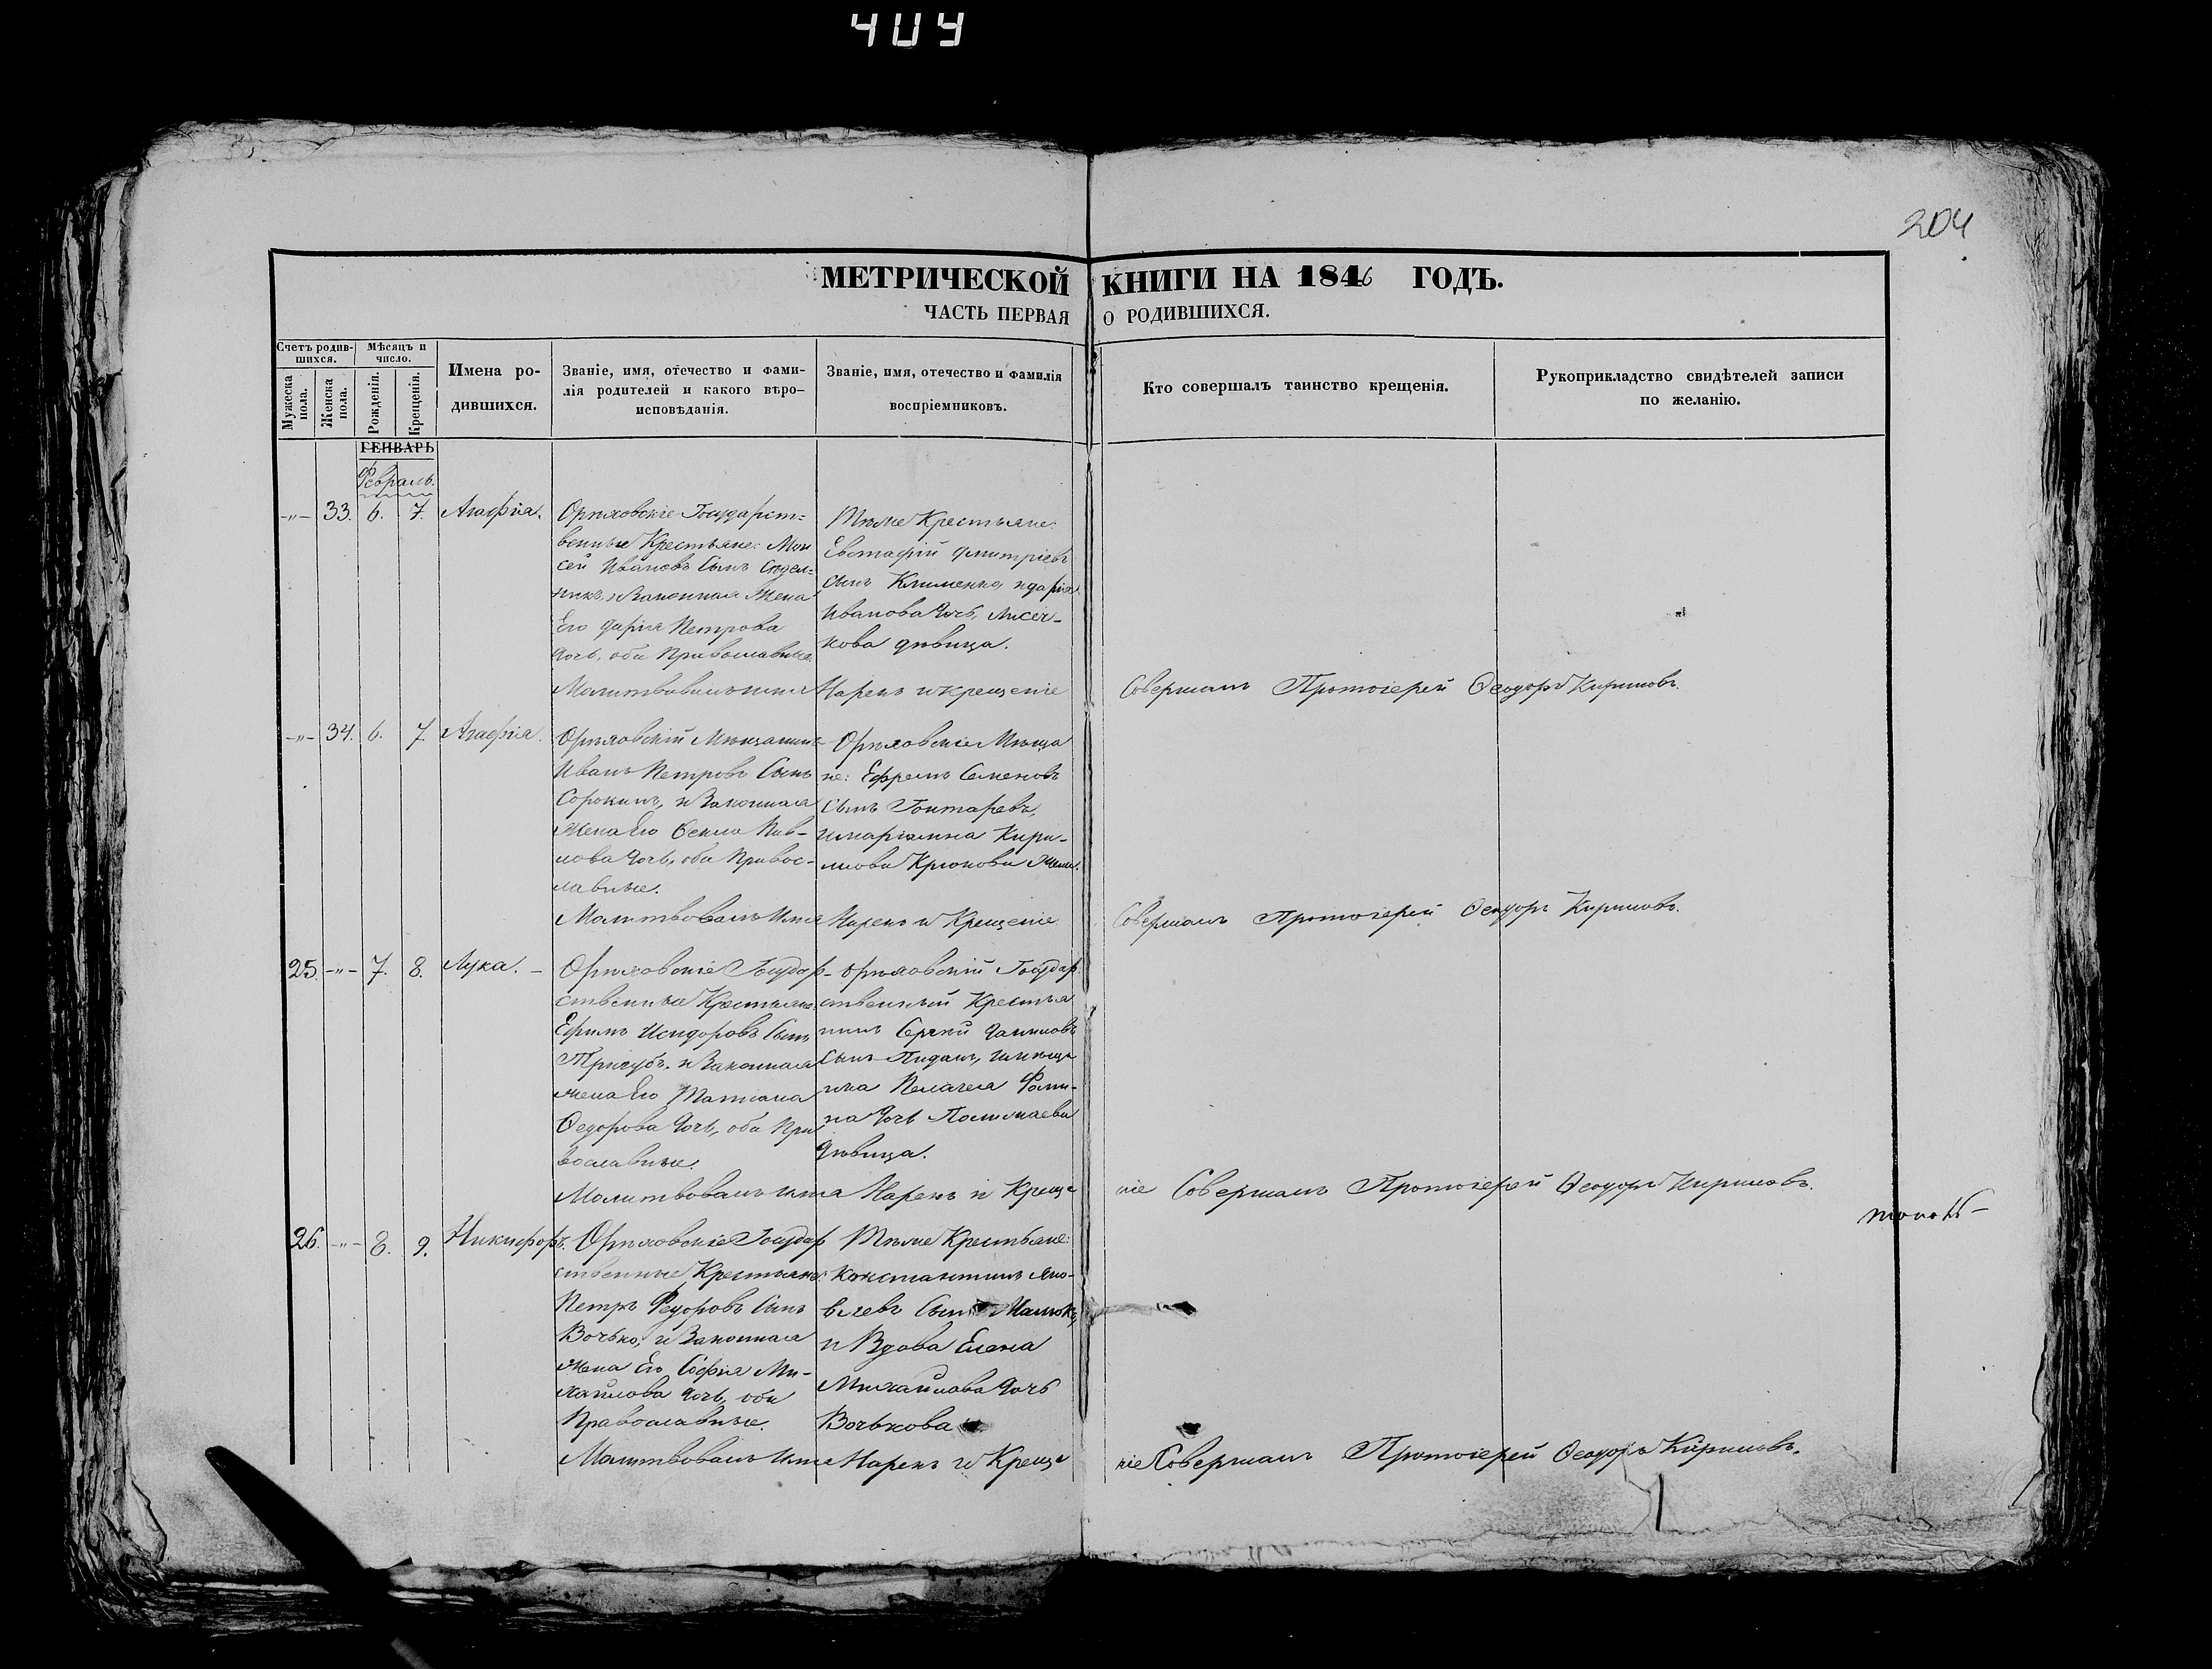 409
204
МЕТРИЧЕСКОЙ КНИГИ НА 1846 ГОДЪ.
ЧАСТЬ ПЕРВАЯ О РОДИВШИХСЯ.
Счетъ родив-
шихся.
Мѣсяцъ и
число.
Мужеска
пола.
Женска
пола.
Рожденія.
Крещенія.
Имена ро-
дившихся.
Званіе, имя, отечество и фами-
лія родителей и какого вѣро-
исповѣданія.
Званіе, имя, отечество и фамилія
воспріемниковъ.
Кто совершалъ таинство крещенія.
Рукоприкладство свидѣтелей записи
по желанію.
ГЕНВАРЬ
Февраль.
-"- 33. 6. 7. Агафія.
Орѣховскіе Государст=
венные Крестьяне: Мои
сей Ивановъ Сынъ
и Законная Жена
Его Дарія Петрова
дочь, оба Православные.
Тѣже Крестьяне:
Евстафій Дмитріевъ
сынъ Клименко, и Дарія
Иванова дочь,
кова дѣвица.
Молитвовалъ имя Нарекъ и крещеніе Совершалъ Протоіерей Ѳеодоръ Кириловъ.
-"- 34. 6. 7. Агафія.
Орѣховскій Мѣщанинъ
Иванъ Петровъ Сынъ
Сорокинъ, и Законная
Жена Его Ѳекла Пав-
лова дочь, оба Правос-
лавные.
Орѣховскіе Мѣща
не: Ефремъ Семеновъ
Сынъ Гонтаревъ,
и Маріамна Кири-
лова Крюкова Жена.
Молитвовалъ Имя Нарекъ и Крещеніе Совершалъ Протоіерей Ѳеодоръ Кириловъ.
25. -"- 7. 8. Лука. -
Орѣховскіе Государ-
ственные Крестьяне,
Ефимъ Исидоровъ Сынъ
Тригубъ, и Законная
жена Его Татіана
Ѳедорова дочь, оба Пра
вославные.
Орѣховскій Государ
ственный Крестья
нинъ Сергѣй Даниловъ
Сынъ и мѣща
нка Пелагея Фоми-
на дочь
дѣвица.
Молитвовалъ имя Нарекъ и Креще
ніе Совершалъ Протоіерей Ѳеодоръ Кириловъ.
26. -"- 8. 9. Никифоръ.
Орѣховскіе Государ
ственные Крестьяне:
Петръ Федоровъ Сынъ
Вочько, и Законная
Жена Его Софія Ми-
хайлова дочь, оба
Православные.
Тѣже Крестьяне:
Константинъ Яко-
влевъ Сынъ
и Вдова Елена
Михайлова дочь
Вочькова
Молитвовалъ Имя Нарекъ и Креще
ніе Совершалъ Протоіерей Ѳеодоръ Кириловъ.